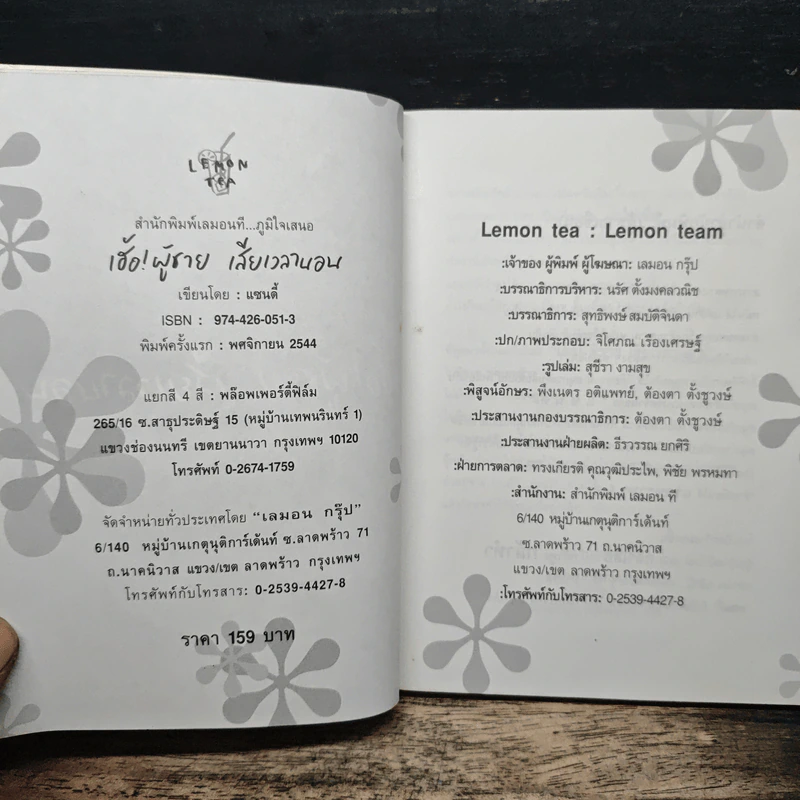 LEMON
TEA
สำนักพิมพ์เลมอนที...ภูมิใจเสนอ
เฮ้อ! ผู้ชาย เสียเวลานอน
เขียนโดย : แซนดี้
ISBN : 974-426-051-3
พิมพ์ครั้งแรก : พฤศจิกายน 2544
แยกสี 4 สี : พล๊อพเพอร์ตี้ฟิล์ม
265/16 ซ.สาธุประดิษฐ์ 15 (หมู่บ้านเทพนรินทร์ 1)
แขวงช่องนนทรี เขตยานนาวา กรุงเทพฯ 10120
โทรศัพท์ 0-2674-1759
จัดจำหน่ายทั่วประเทศโดย "เลมอน กรุ๊ป"
6/140 หมู่บ้านเกตุนุติการ์เด้นท์ ซ.ลาดพร้าว 71
ถ.นาคนิวาส แขวง/เขต ลาดพร้าว กรุงเทพฯ
โทรศัพท์กับโทรสาร: 0-2539-4427-8
ราคา 159 บาท
Lemon tea : Lemon team
:เจ้าของ ผู้พิมพ์ ผู้โฆษณา: เลมอน กรุ๊ป
:บรรณาธิการบริหาร: นรัศ ตั้งมงคลวณิช
:บรรณาธิการ: สุทธิพงษ์ สมบัติจินดา
:ปก/ภาพประกอบ: จิโศภณ เรืองเศรษฐ์
:รูปเล่ม: สุชีรา งามสุข
:พิสูจน์อักษร: พึงเนตร อติแพทย์, ต้องตา ตั้งชูวงษ์
:ประสานงานกองบรรณาธิการ: ต้องตา ตั้งชูวงษ์
:ประสานงานฝ่ายผลิต: ธีรวรรณ ยกศิริ
:ฝ่ายการตลาด: ทรงเกียรติ คุณวุฒิประไพ, พิชัย พรหมทา
:สำนักงาน: สำนักพิมพ์ เลมอน ที
6/140 หมู่บ้านเกตุนุติการ์เด้นท์
ซ.ลาดพร้าว 71 ถ.นาคนิวาส
แขวง/เขต ลาดพร้าว กรุงเทพฯ
:โทรศัพท์กับโทรสาร: 0-2539-4427-8